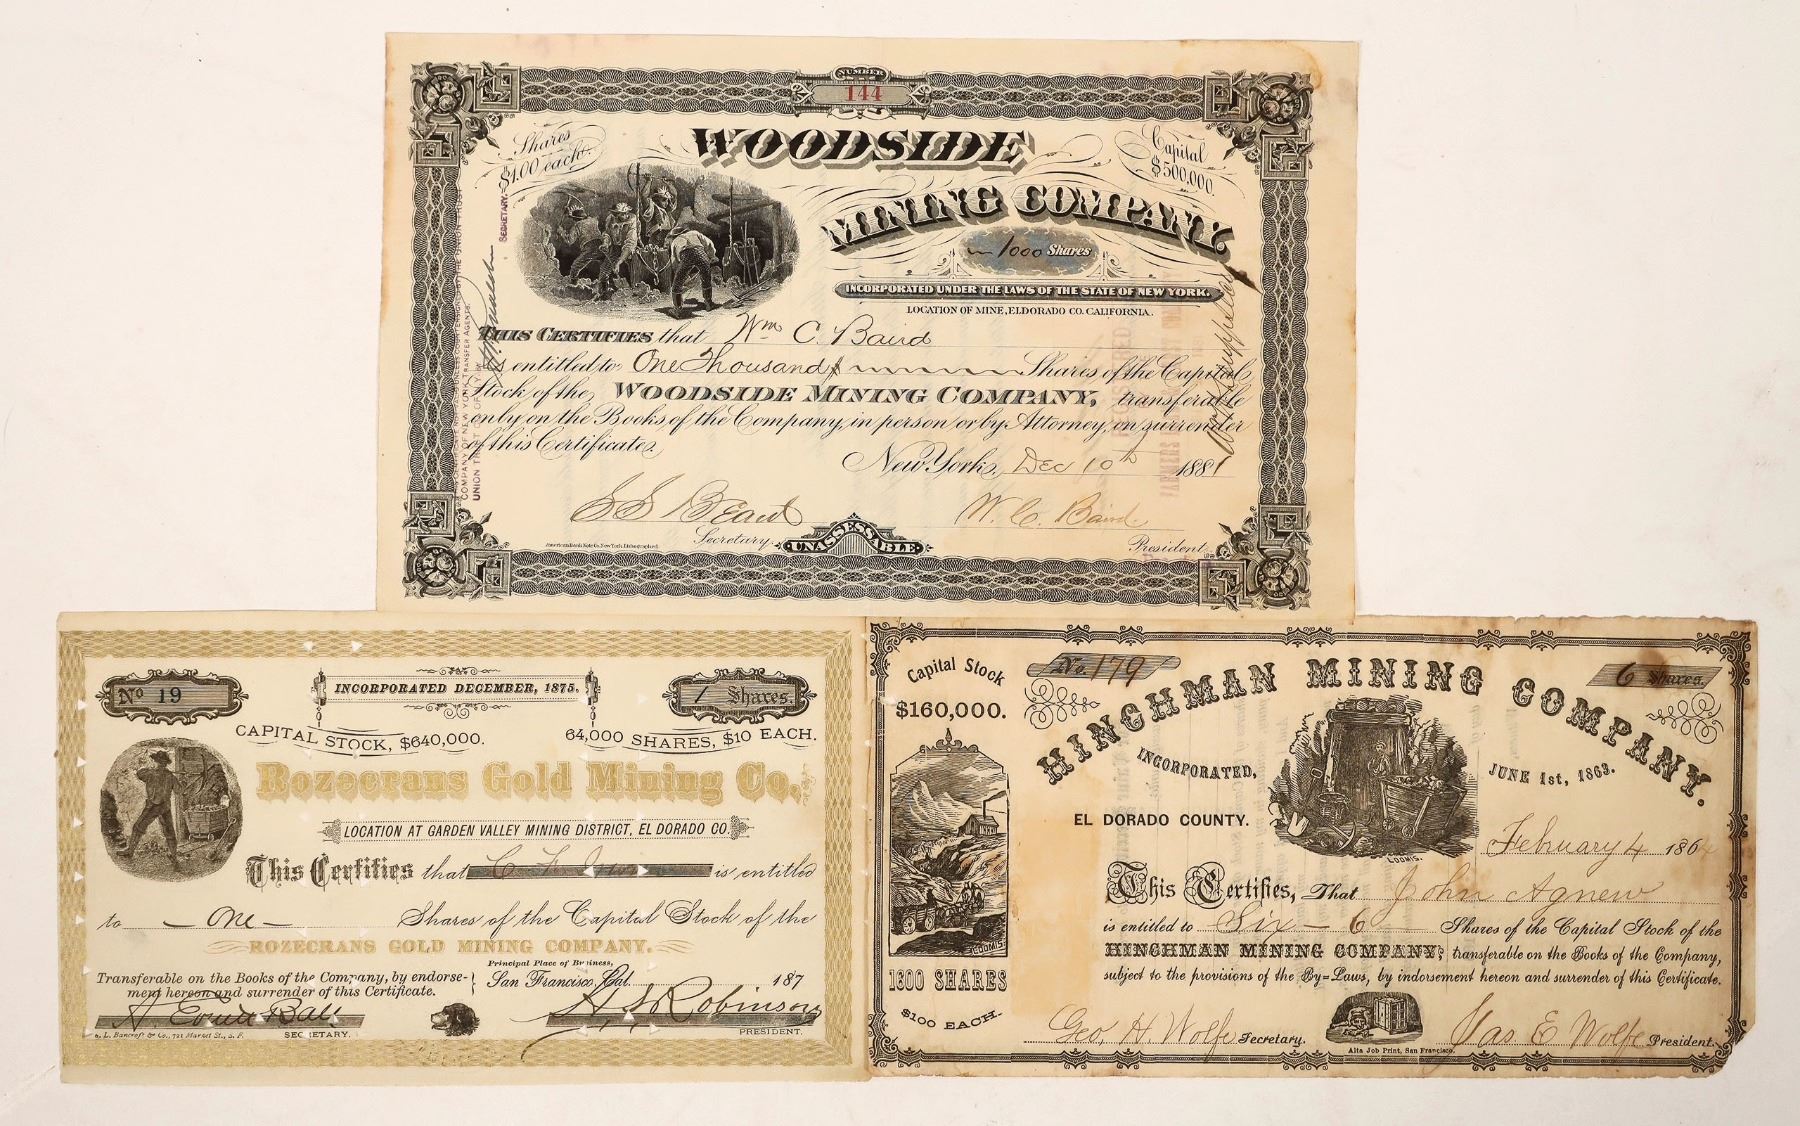 NUMBER
144
Shares
$1.00 each.
Capital
$500,000.
WOODSIDE
MINING COMPANY.
1000 Shares
INCORPORATED UNDER THE LAWS OF THE STATE OF NEW YORK.
LOCATION OF MINE, ELDORADO CO. CALIFORNIA.
THIS CERTIFIES that Wm C. Baird
is entitled to One Thousand Shares of the Capital
Stock of the WOODSIDE MINING COMPANY, transferable
only on the Books of the Company, in person or by Attorney, on surrender
of this Certificate.
New York, Dec 10th 1881
S S Beard
Secretary.
UNASSESSABLE
W. C. Baird
President.
American Bank Note Co. New York. Lithographed.
SECRETARY.
COMPANY OF NEW YORK, TRANSFER AGENTS.
No 19
INCORPORATED DECEMBER, 1875.
1 Shares.
CAPITAL STOCK, $640,000.
64,000 SHARES, $10 EACH.
Rozecrans Gold Mining Co.
LOCATION AT GARDEN VALLEY MINING DISTRICT, EL DORADO CO.
This Certifies that C. F. is entitled
to One Shares of the Capital Stock of the
ROZECRANS GOLD MINING COMPANY.
Principal Place of Business,
Transferable on the Books of the Company, by endorse-
ment hereon and surrender of this Certificate.
San Francisco, Cal. 187
Ball
SECRETARY.
Robinson
PRESIDENT.
A. L. Bancroft & Co., 721 Market St., S. F.
Capital Stock
$160,000.
No. 179
6 Shares.
HINCHMAN MINING COMPANY.
INCORPORATED,
JUNE 1st, 1863.
EL DORADO COUNTY.
LOOMIS.
February 4 1864
This Certifies, That John Agnew
is entitled to Six - 6 Shares of the Capital Stock of the
HINCHMAN MINING COMPANY; transferable on the Books of the Company,
subject to the provisions of the By=Laws, by indorsement hereon and surrender of this Certificate.
LOOMIS.
1600 SHARES
$100 EACH.
Geo. H. Wolfe Secretary.
Jas E Wolfe President.
Alta Job Print, San Francisco.